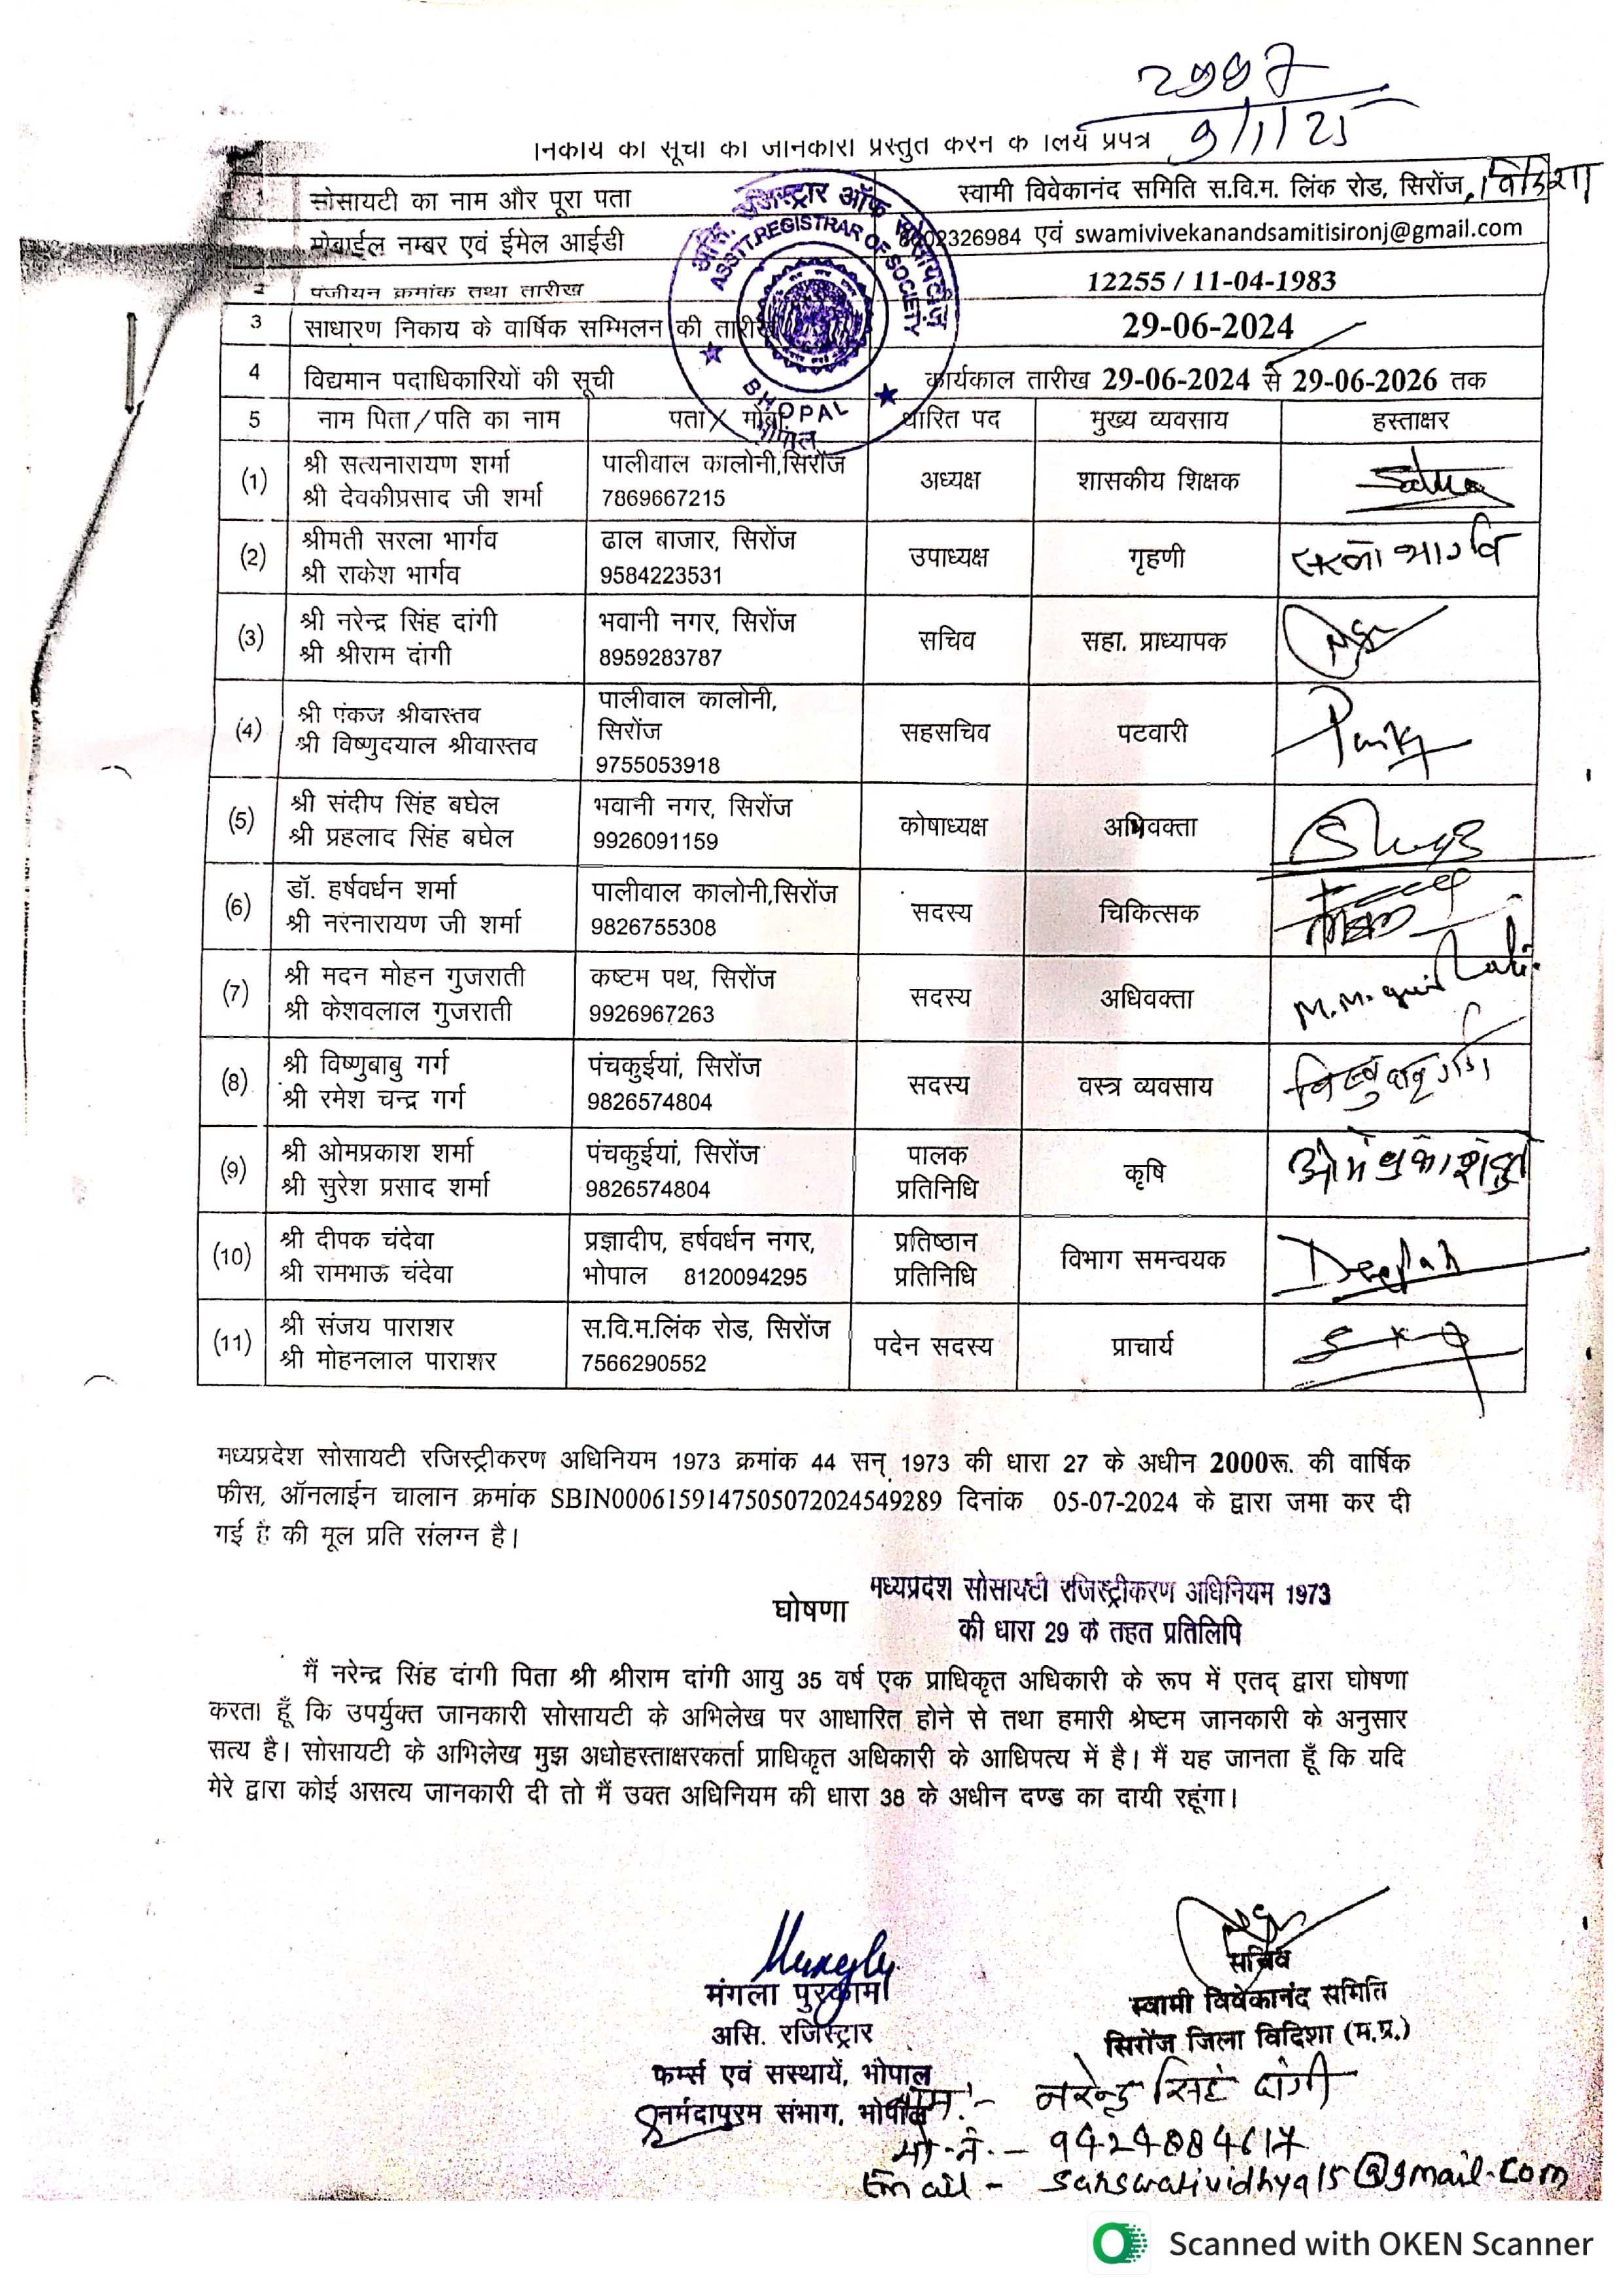 2007
9/1/25
निकाय की सूची की जानकारी प्रस्तुत करने के लिये प्रपत्र
1 सोसायटी का नाम और पूरा पता स्वामी विवेकानंद समिति स.वि.म. लिंक रोड, सिरोंज, विदिशा
मोबाईल नम्बर एवं ईमेल आईडी 2326984 एवं swamivivekanandsamitisironj@gmail.com
2 पंजीयन क्रमांक तथा तारीख 12255 / 11-04-1983
3 साधारण निकाय के वार्षिक सम्मिलन की तारीख 29-06-2024
4 विद्यमान पदाधिकारियों की सूची कार्यकाल तारीख 29-06-2024 से 29-06-2026 तक
असि. रजिस्ट्रार ऑफ सोसायटीज़
ASSTT.REGISTRAR OF SOCIETY
BHOPAL
भोपाल
5 नाम पिता/पति का नाम पता/ मोबा. धारित पद मुख्य व्यवसाय हस्ताक्षर
(1) श्री सत्यनारायण शर्मा पालीवाल कालोनी,सिरोंज अध्यक्ष शासकीय शिक्षक
श्री देवकीप्रसाद जी शर्मा 7869667215
(2) श्रीमती सरला भार्गव ढाल बाजार, सिरोंज उपाध्यक्ष गृहणी सरला भार्गव
श्री राकेश भार्गव 9584223531
(3) श्री नरेन्द्र सिंह दांगी भवानी नगर, सिरोंज सचिव सहा. प्राध्यापक
श्री श्रीराम दांगी 8959283787
(4) श्री पंकज श्रीवास्तव पालीवाल कालोनी, सहसचिव पटवारी
श्री विष्णुदयाल श्रीवास्तव सिरोंज
9755053918
(5) श्री संदीप सिंह बघेल भवानी नगर, सिरोंज कोषाध्यक्ष अभिवक्ता
श्री प्रहलाद सिंह बघेल 9926091159
(6) डॉ. हर्षवर्धन शर्मा पालीवाल कालोनी,सिरोंज सदस्य चिकित्सक
श्री नरनारायण जी शर्मा 9826755308
(7) श्री मदन मोहन गुजराती कष्टम पथ, सिरोंज सदस्य अधिवक्ता M.M.
श्री केशवलाल गुजराती 9926967263
(8) श्री विष्णुबाबु गर्ग पंचकुईयां, सिरोंज सदस्य वस्त्र व्यवसाय विष्णु बाबू गर्ग
श्री रमेश चन्द्र गर्ग 9826574804
(9) श्री ओमप्रकाश शर्मा पंचकुईयां, सिरोंज पालक कृषि
श्री सुरेश प्रसाद शर्मा 9826574804 प्रतिनिधि
(10) श्री दीपक चंदेवा प्रज्ञादीप, हर्षवर्धन नगर, प्रतिष्ठान विभाग समन्वयक Deepak
श्री रामभाऊ चंदेवा भोपाल 8120094295 प्रतिनिधि
(11) श्री संजय पाराशर स.वि.म.लिंक रोड, सिरोंज पदेन सदस्य प्राचार्य
श्री मोहनलाल पाराशर 7566290552
मध्यप्रदेश सोसायटी रजिस्ट्रीकरण अधिनियम 1973 क्रमांक 44 सन् 1973 की धारा 27 के अधीन 2000रू. की वार्षिक
फीस, ऑनलाईन चालान क्रमांक SBIN0006159147505072024549289 दिनांक 05-07-2024 के द्वारा जमा कर दी
गई है की मूल प्रति संलग्न है।
मध्यप्रदेश सोसायटी रजिस्ट्रीकरण अधिनियम 1973
घोषणा
की धारा 29 के तहत प्रतिलिपि
मैं नरेन्द्र सिंह दांगी पिता श्री श्रीराम दांगी आयु 35 वर्ष एक प्राधिकृत अधिकारी के रूप में एतद् द्वारा घोषणा
करता हूँ कि उपर्युक्त जानकारी सोसायटी के अभिलेख पर आधारित होने से तथा हमारी श्रेष्टम जानकारी के अनुसार
सत्य है। सोसायटी के अभिलेख मुझ अधोहस्ताक्षरकर्ता प्राधिकृत अधिकारी के आधिपत्य में है। मैं यह जानता हूँ कि यदि
मेरे द्वारा कोई असत्य जानकारी दी तो मैं उक्त अधिनियम की धारा 38 के अधीन दण्ड का दायी रहूंगा।
मंगला पुरकाम
असि. रजिस्ट्रार
फर्म्स एवं संस्थायें, भोपाल
नर्मदापुरम संभाग, भोपाल
सचिव
स्वामी विवेकानंद समिति
सिरोंज जिला विदिशा (म.प्र.)
नाम:- नरेन्द्र सिंह दांगी
मो.नं.- 9424884617
Email - sarswatividhya15@gmail.com
Scanned with OKEN Scanner